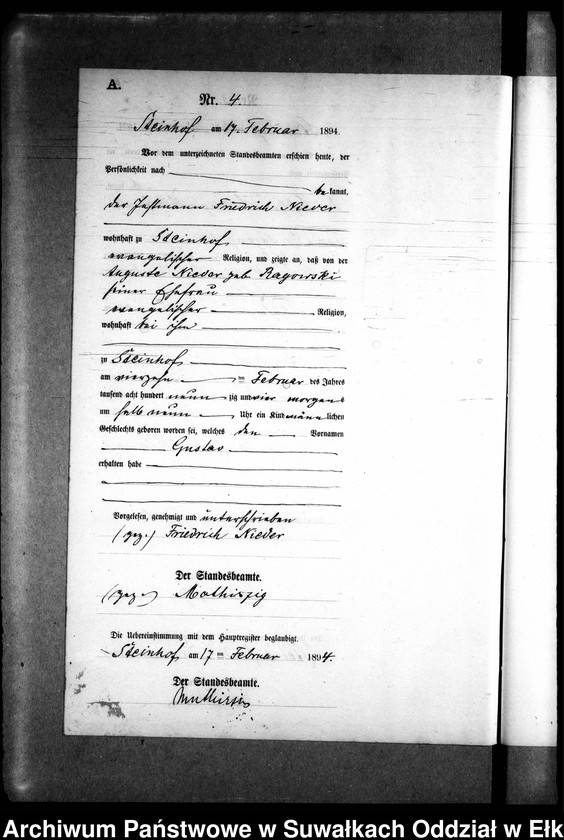 A.
Nr. 4.
Steinhof am 17. Februar 1894
Vor dem unterzeichneten Standesbeamten erschien heute, der
Persönlichkeit nach
bekannt,
der Instmann Friedrich Nieder
wohnhaft zu Steinhof
evangelischer Religion, und zeigte an, daß von der
Auguste Nieder geb. Ragowski
seiner Ehefrau
evangelischer Religion,
wohnhaft bei ihm
zu Steinhof
am vierzehn ten Februar des Jahres
tausend acht hundert neun zig und vier morgens
um halb neun Uhr ein Kind männlichen
Geschlechts geboren worden sei, welches den Vornamen
Gustav
erhalten habe
Vorgelesen, genehmigt und unterschrieben
(gez.) Friedrich Nieder
Der Standesbeamte.
(gez.)
Die Uebereinstimmung mit dem Hauptregister beglaubigt.
Steinhof am 17 ten Februar 1894.
Der Standesbeamte.
Archiwum Państwowe w Suwałkach Oddział w Ełk